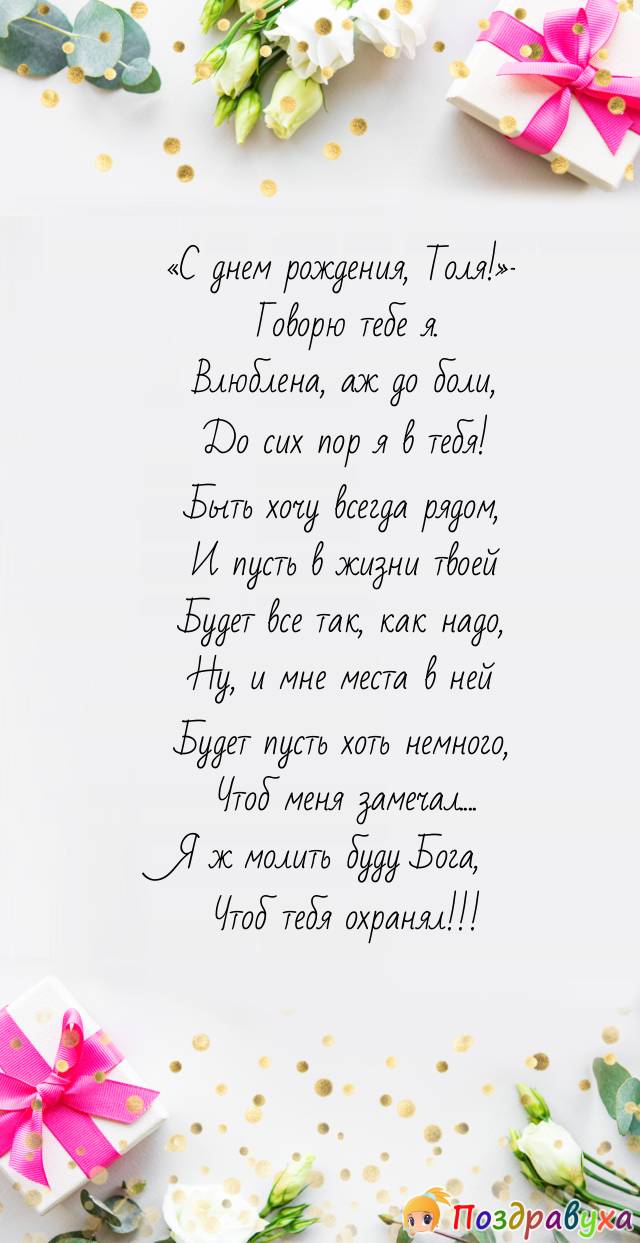 «С днем рождения, Толя!»-
Говорю тебе я.
Влюблена, аж до боли,
До сих пор я в тебя!
Быть хочу всегда рядом,
И пусть в жизни твоей
Будет все так, как надо,
Ну, и мне места в ней
Будет пусть хоть немного,
Чтоб меня замечал....
Я ж молить буду Бога,
Чтоб тебя охранял!!!
Поздравуха